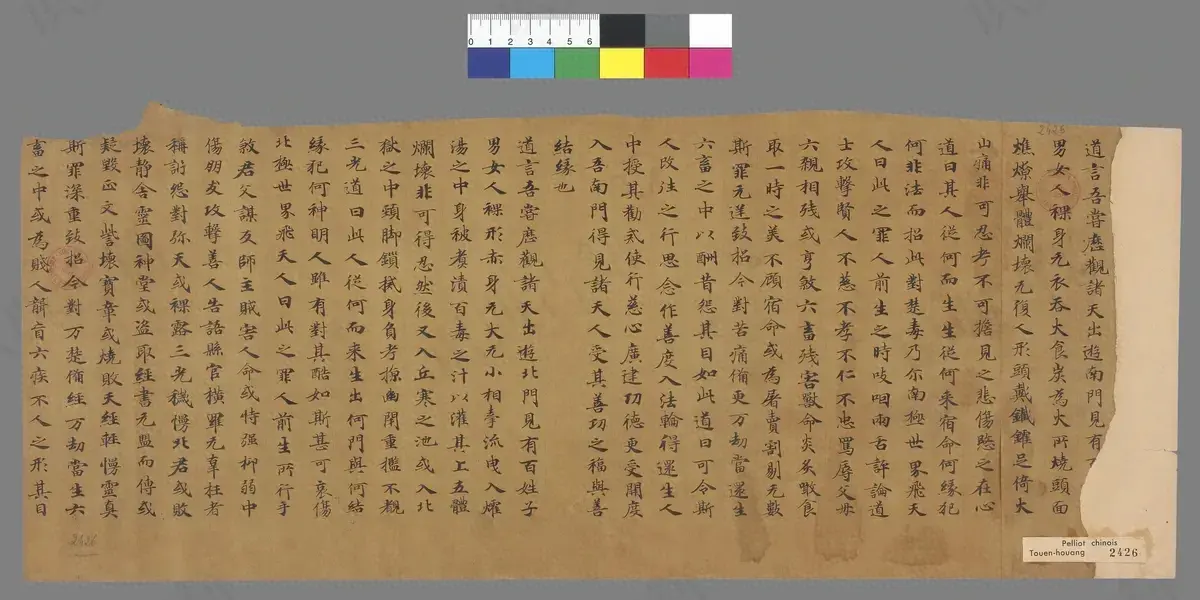 道言吾嘗歷觀諸天出遊南門見有
男女人裸身无衣吞火食炭為火所燒頭面
燋燎舉體爛壞无復人形頭戴鐵鑵足倚大
山痛非可忍考不可擔見之悲傷愍之在心
道曰其人從何而生生從何来宿命何緣犯
何非法而招此對楚毒乃尔南極世界飛天
人曰此之罪人前生之時吱呬兩舌評論道
士攻擊賢人不慈不孝不仁不忠罵辱父母
六親相殘或亨煞六畜殘害獸命炎炙噉食
取一時之美不顧宿命或為屠賣割剔无數
斯罪无逕致招今對苦痛俻更万劫當還生
六畜之中以酬昔怨其目如此道曰可令斯
人改法之行思念作善度入法輪得還生人
中授其勸戒使行慈心廣建功德更受開度
入吾南門得見諸天人受其善功之福與善
結緣也
道言吾嘗歷觀諸天出遊北門見有百姓子
男女人裸形赤身无大无小相牽流曳入鑊
湯之中身被煮漬百毒之汁以灌其上五體
爛壞非可得忍然後又入丘寒之池或入北
獄之中頸脚鎖械身負考掠幽閉重檻不覩
三光道曰此人從何而来生出何門與何結
緣犯何神明人雖有對其酷如斯甚可哀傷
北極世界飛天人曰此之罪人前生所行手
煞君父謀反師主賊害人命或恃强抑弱中
傷朋友攻擊善人告語縣官橫羅无辜枉者
稱訕怨對弥天或裸露三光穢慢北君或敗
壞静舍靈圖神堂或盜取經書无盟而傳或
疑毀正文訾壞寶章或燒敗天經輕慢靈真
斯罪深重致招今對万楚俻經万劫當生六
畜之中或為賤人聾盲六疾不人之形其目
2426
2426
0 1 2 3 4 5 6
Pelliot chinois
Touen-houang 2426